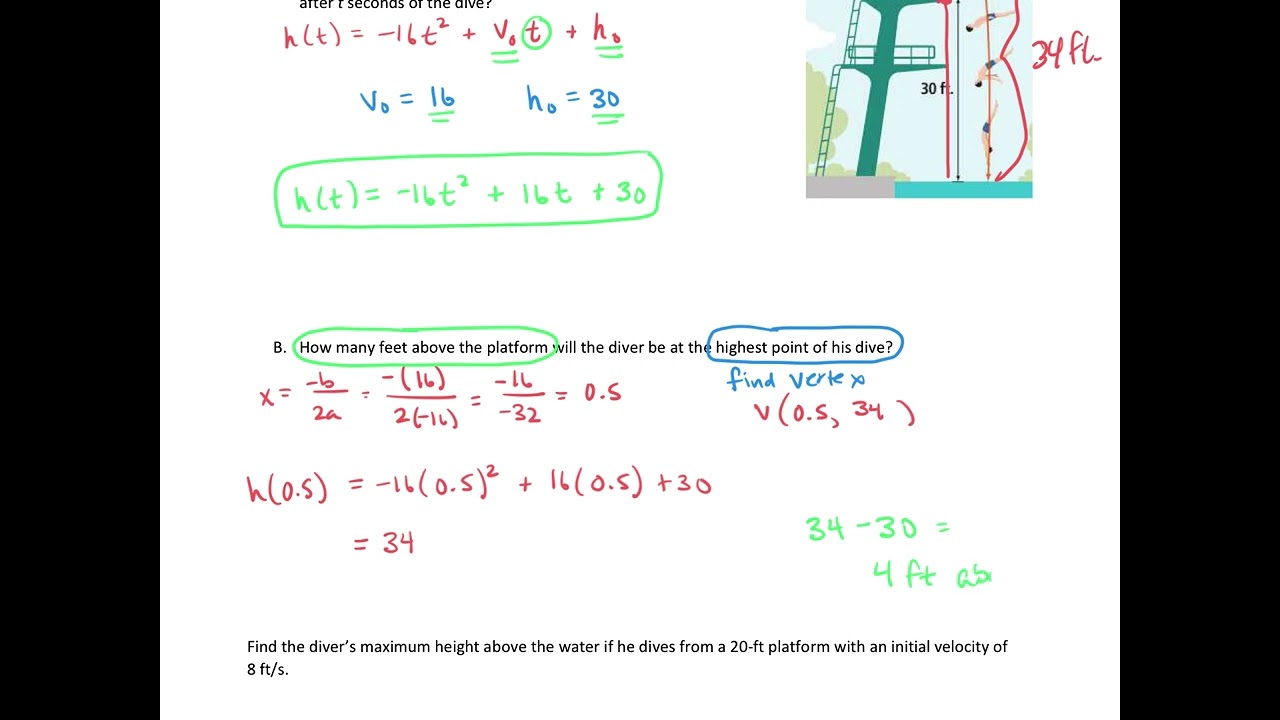 after t seconds of the dive?
h(t) = -16t² + v₀t + h₀
34 ft.
30 ft.
v₀ = 16 h₀ = 30
h(t) = -16t² + 16t + 30
B. How many feet above the platform will the diver be at the highest point of his dive?
x = -b/2a = -(16)/2(-16) = -16/-32 = 0.5
find vertex
V(0.5, 34 )
h(0.5) = -16(0.5)² + 16(0.5) +30
= 34
34 - 30 =
4 ft ab
Find the diver's maximum height above the water if he dives from a 20-ft platform with an initial velocity of
8 ft/s.